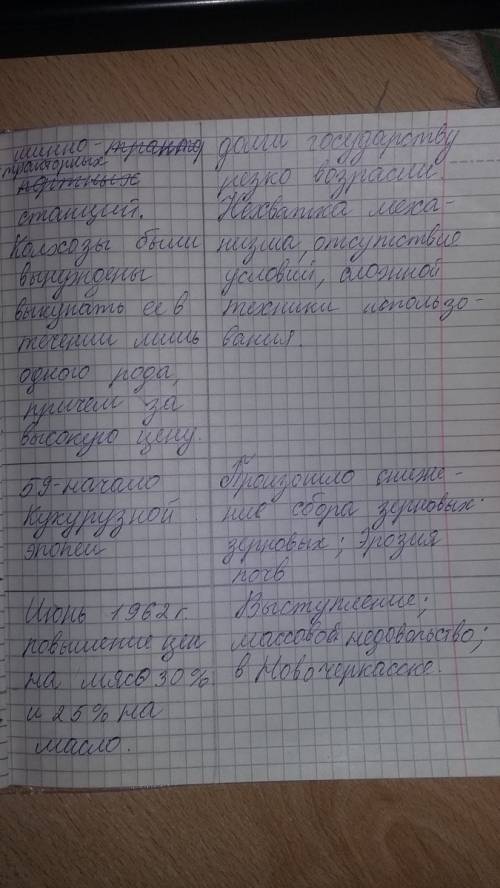 шинно-
тракторных
станций.
Колхозы были
вынуждены
выкупать ее в
течении лишь
одного года,
причем за
высокую цену.
долги государству
резко возрасли.
Нехватка меха-
низма, отсутствие
условий, сложной
техники использо-
вания.
59-начало
Кукурузной
эпопеи
Произошло сниже-
ние сбора зерновых.
зерновых; Эрозия
почв
Июнь 1962 г.
повышение цен
на мясо 30%
и 25% на
масло.
Выступление;
массовое недовольство;
в Новочеркасске.